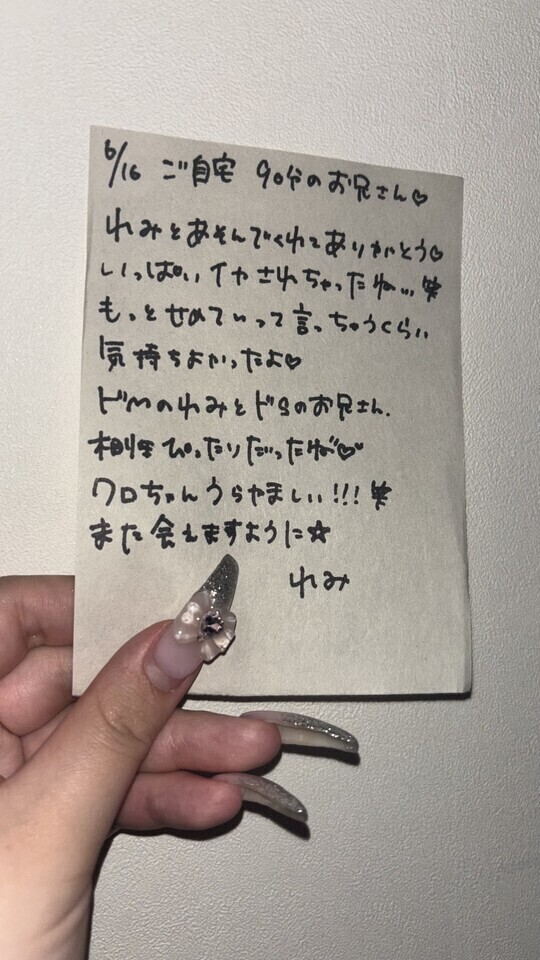 6/16 ご自宅 90分のお兄さん♡
れみとあそんでくれてありがとう♡
いっぱいイヤされちゃったね... 笑
もっとせめていって言っちゃうくらい
気持ちよかったよ♡
ドMのれみとドSのお兄さん.
相性ぴったりだったね♡
クロちゃんうらやましい!!! 笑
また会えますように☆
れみ